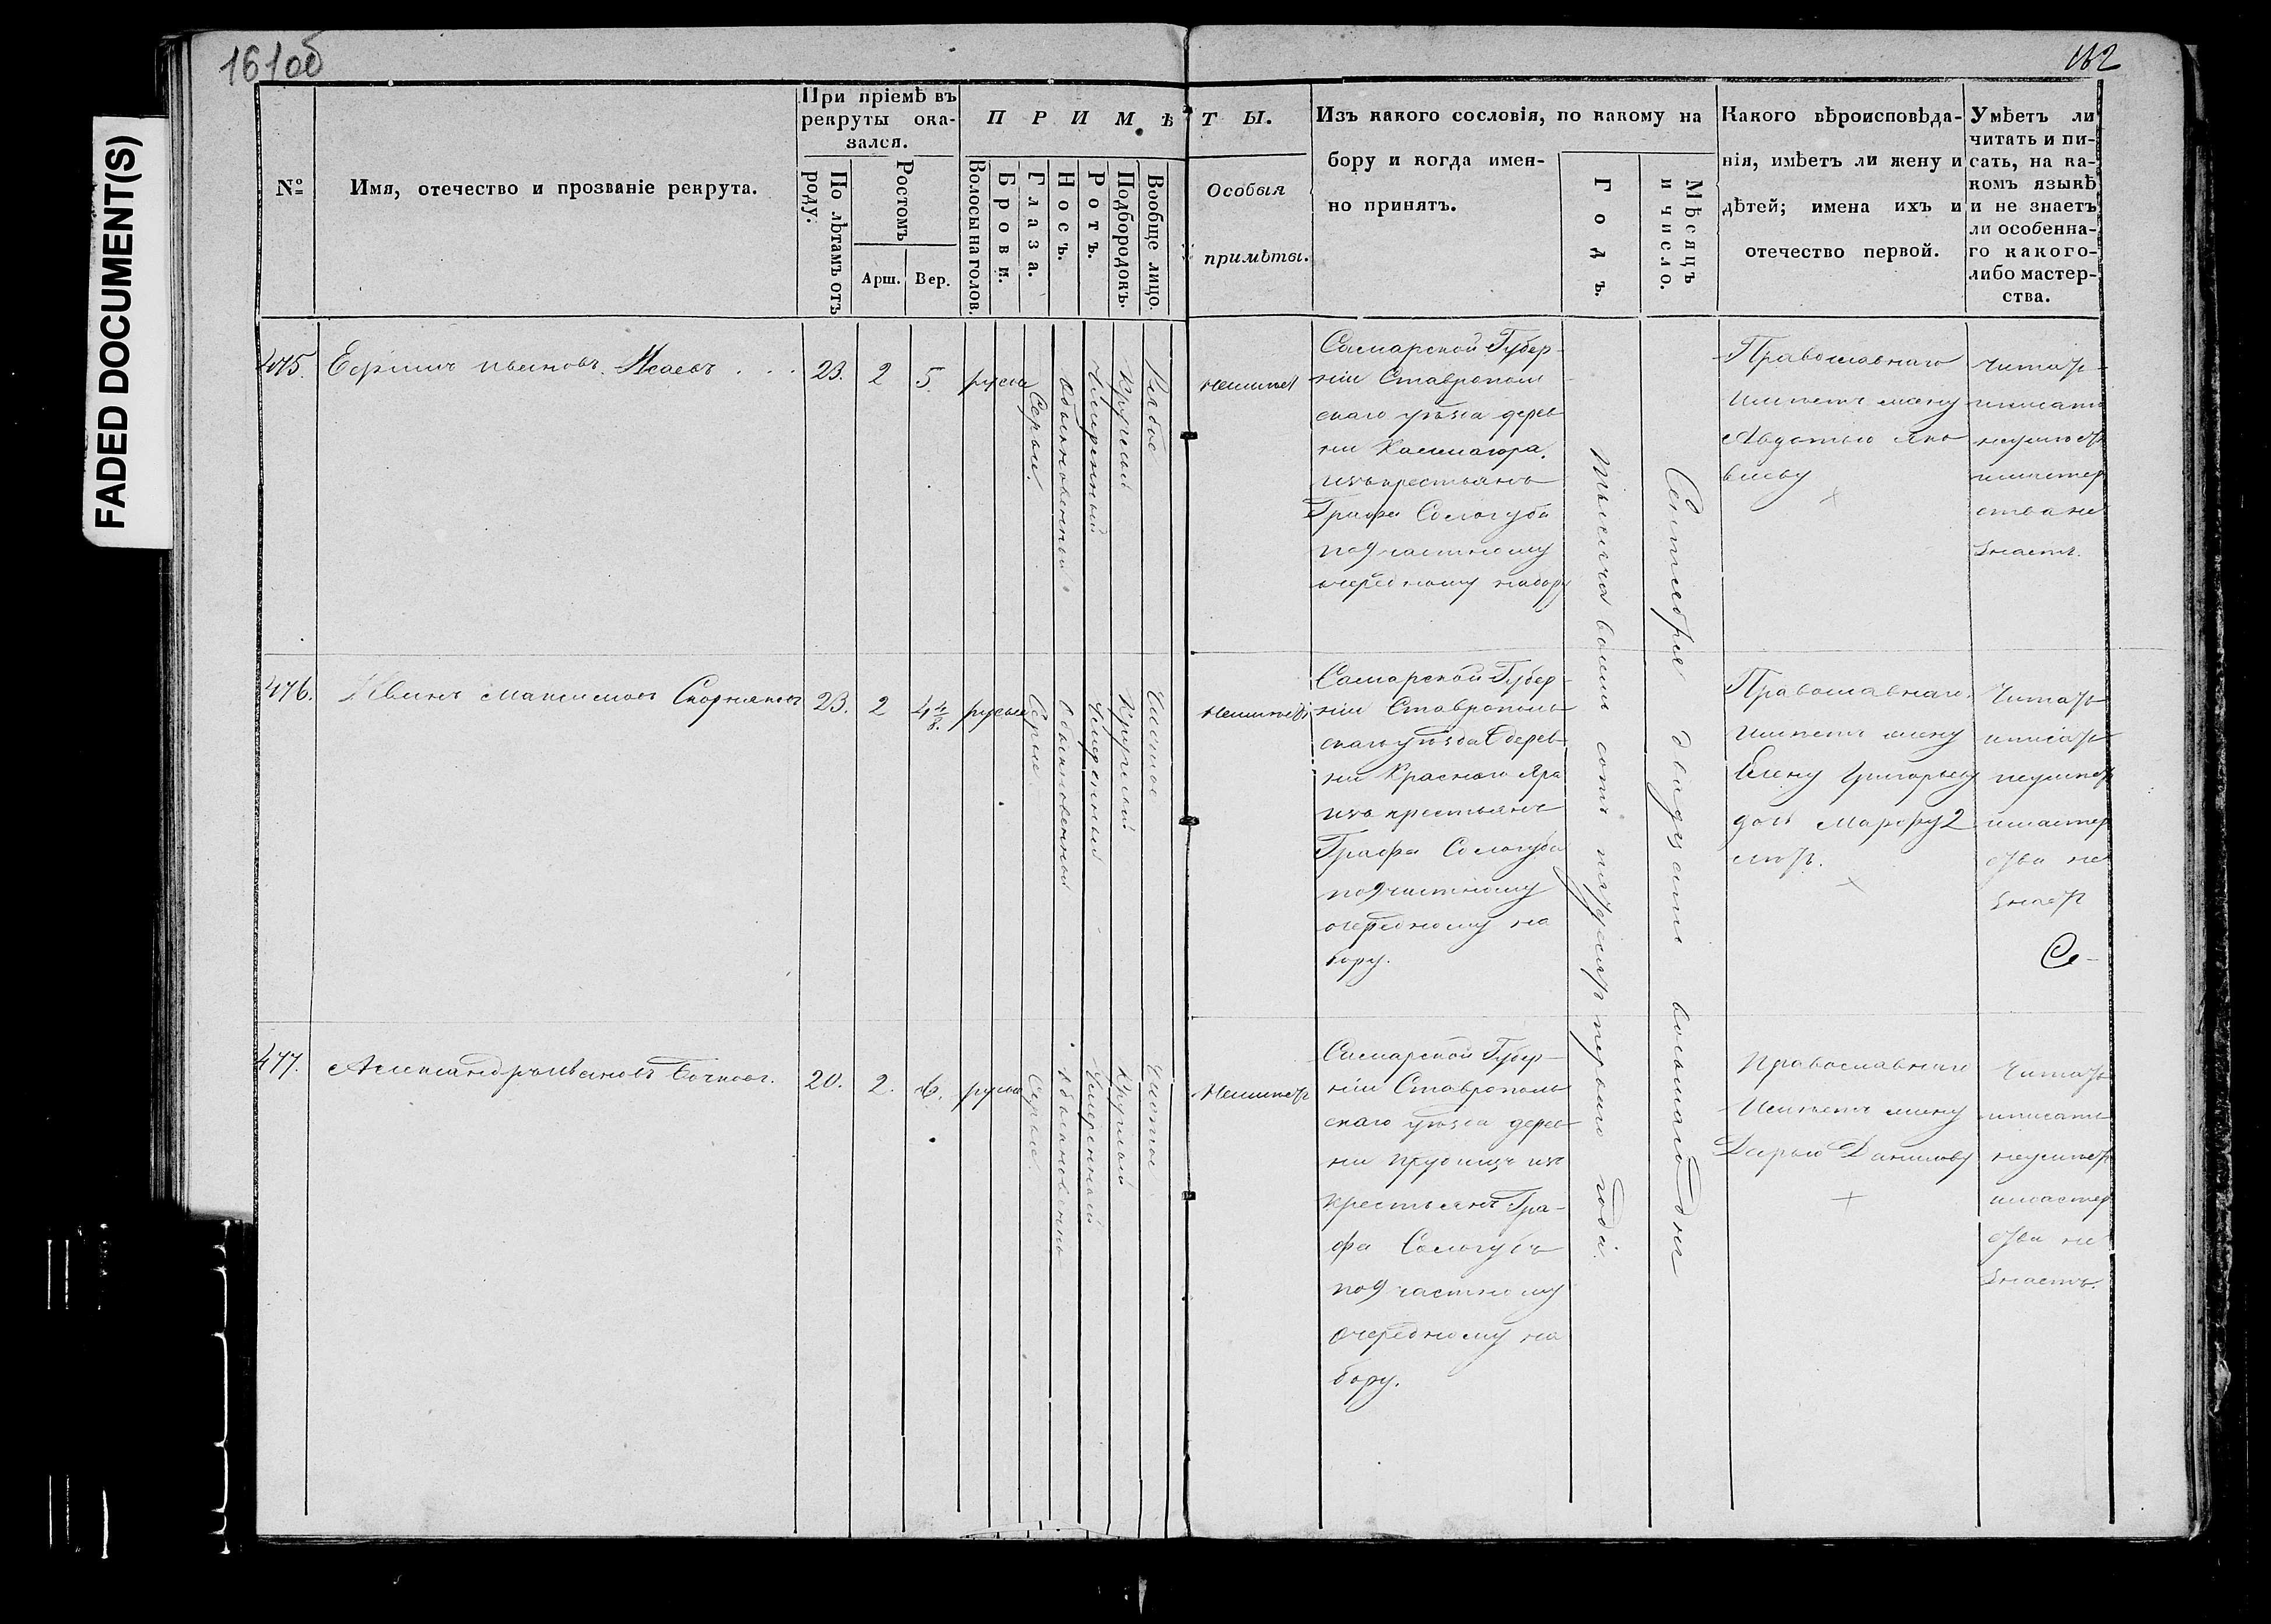 161об
162
FADED DOCUMENT(S)
№
Имя, отечество и прозваніе рекрута.
При пріемѣ въ
рекруты ока-
зался.
По лѣтамъ отъ
роду.
Ростомъ
Арш.
Вер.
ПРИМѢТЫ.
Волосы на голов.
Брови.
Глаза.
Носъ.
Ротъ.
Подбородокъ.
Вообще лицо.
Особыя
примѣты.
Изъ какого сословія, по какому на
бору и когда имен-
но принятъ.
Годъ.
Мѣсяцъ
и число.
Какого вѣроисповѣда-
нія, имѣетъ ли жену и
дѣтей; имена ихъ и
отечество первой.
Умѣетъ ли
читать и пи-
сать, на ка-
комъ языкѣ
и не знаетъ
ли особенна-
го какого-
либо мастер-
ства.
475.
Ефимъ Ивановъ Исаевъ
23.
2
5.
русые
Серые.
обыкновенный
Умеренный
Круглый
Рябое
неимеет
Самарской Губер-
ніи Ставрополь
скаго уѣзда дерев
ни
изъ крестьянъ
Графа Сологуба
по 9 частному
очередному набору
тысяча восемь сотъ пятдесятъ перваго года.
Сентября двадцать восьмаго дня
Православнаго
имѣетъ жену
Авдотью Яко
влеву
читать
иписать
неумѣетъ
имастер
ства не
знаетъ.
476.
Иванъ Максимовъ Скорняковъ
23.
2
4 4/8.
русые
Серые
обыкновенный
Умеренный
Круглый
Чистое
Неимѣетъ
Самарской Губер-
ніи Ставрополь-
скаго уѣзда дерев-
ни Краснаго Яра
изъ крестьянъ
Графа Сологуба
по 9 частному
очередному на
бору.
Православнаго.
имѣетъ жену
Елену Григорьеву
дочь Марфу 2
лѣтъ.
Читать
иписать
неумѣетъ
имастер
ства не
знаетъ
477.
Александръ Ивановъ Бочковъ.
20.
2.
6.
русые
Серые.
обыкновенно
Умеренный
Круглый
Чистое
Неимѣетъ
Самарской Губер-
ніи Ставрополь
скаго уѣзда дерев-
ни изъ
крестьянъ Гра-
фа Сологубъ
по 9 частному
очередному на
бору.
Православнаго
Имѣетъ жену
Дарью Данилову
Читать
иписать
неумѣетъ
имастер
ства не
знаетъ.